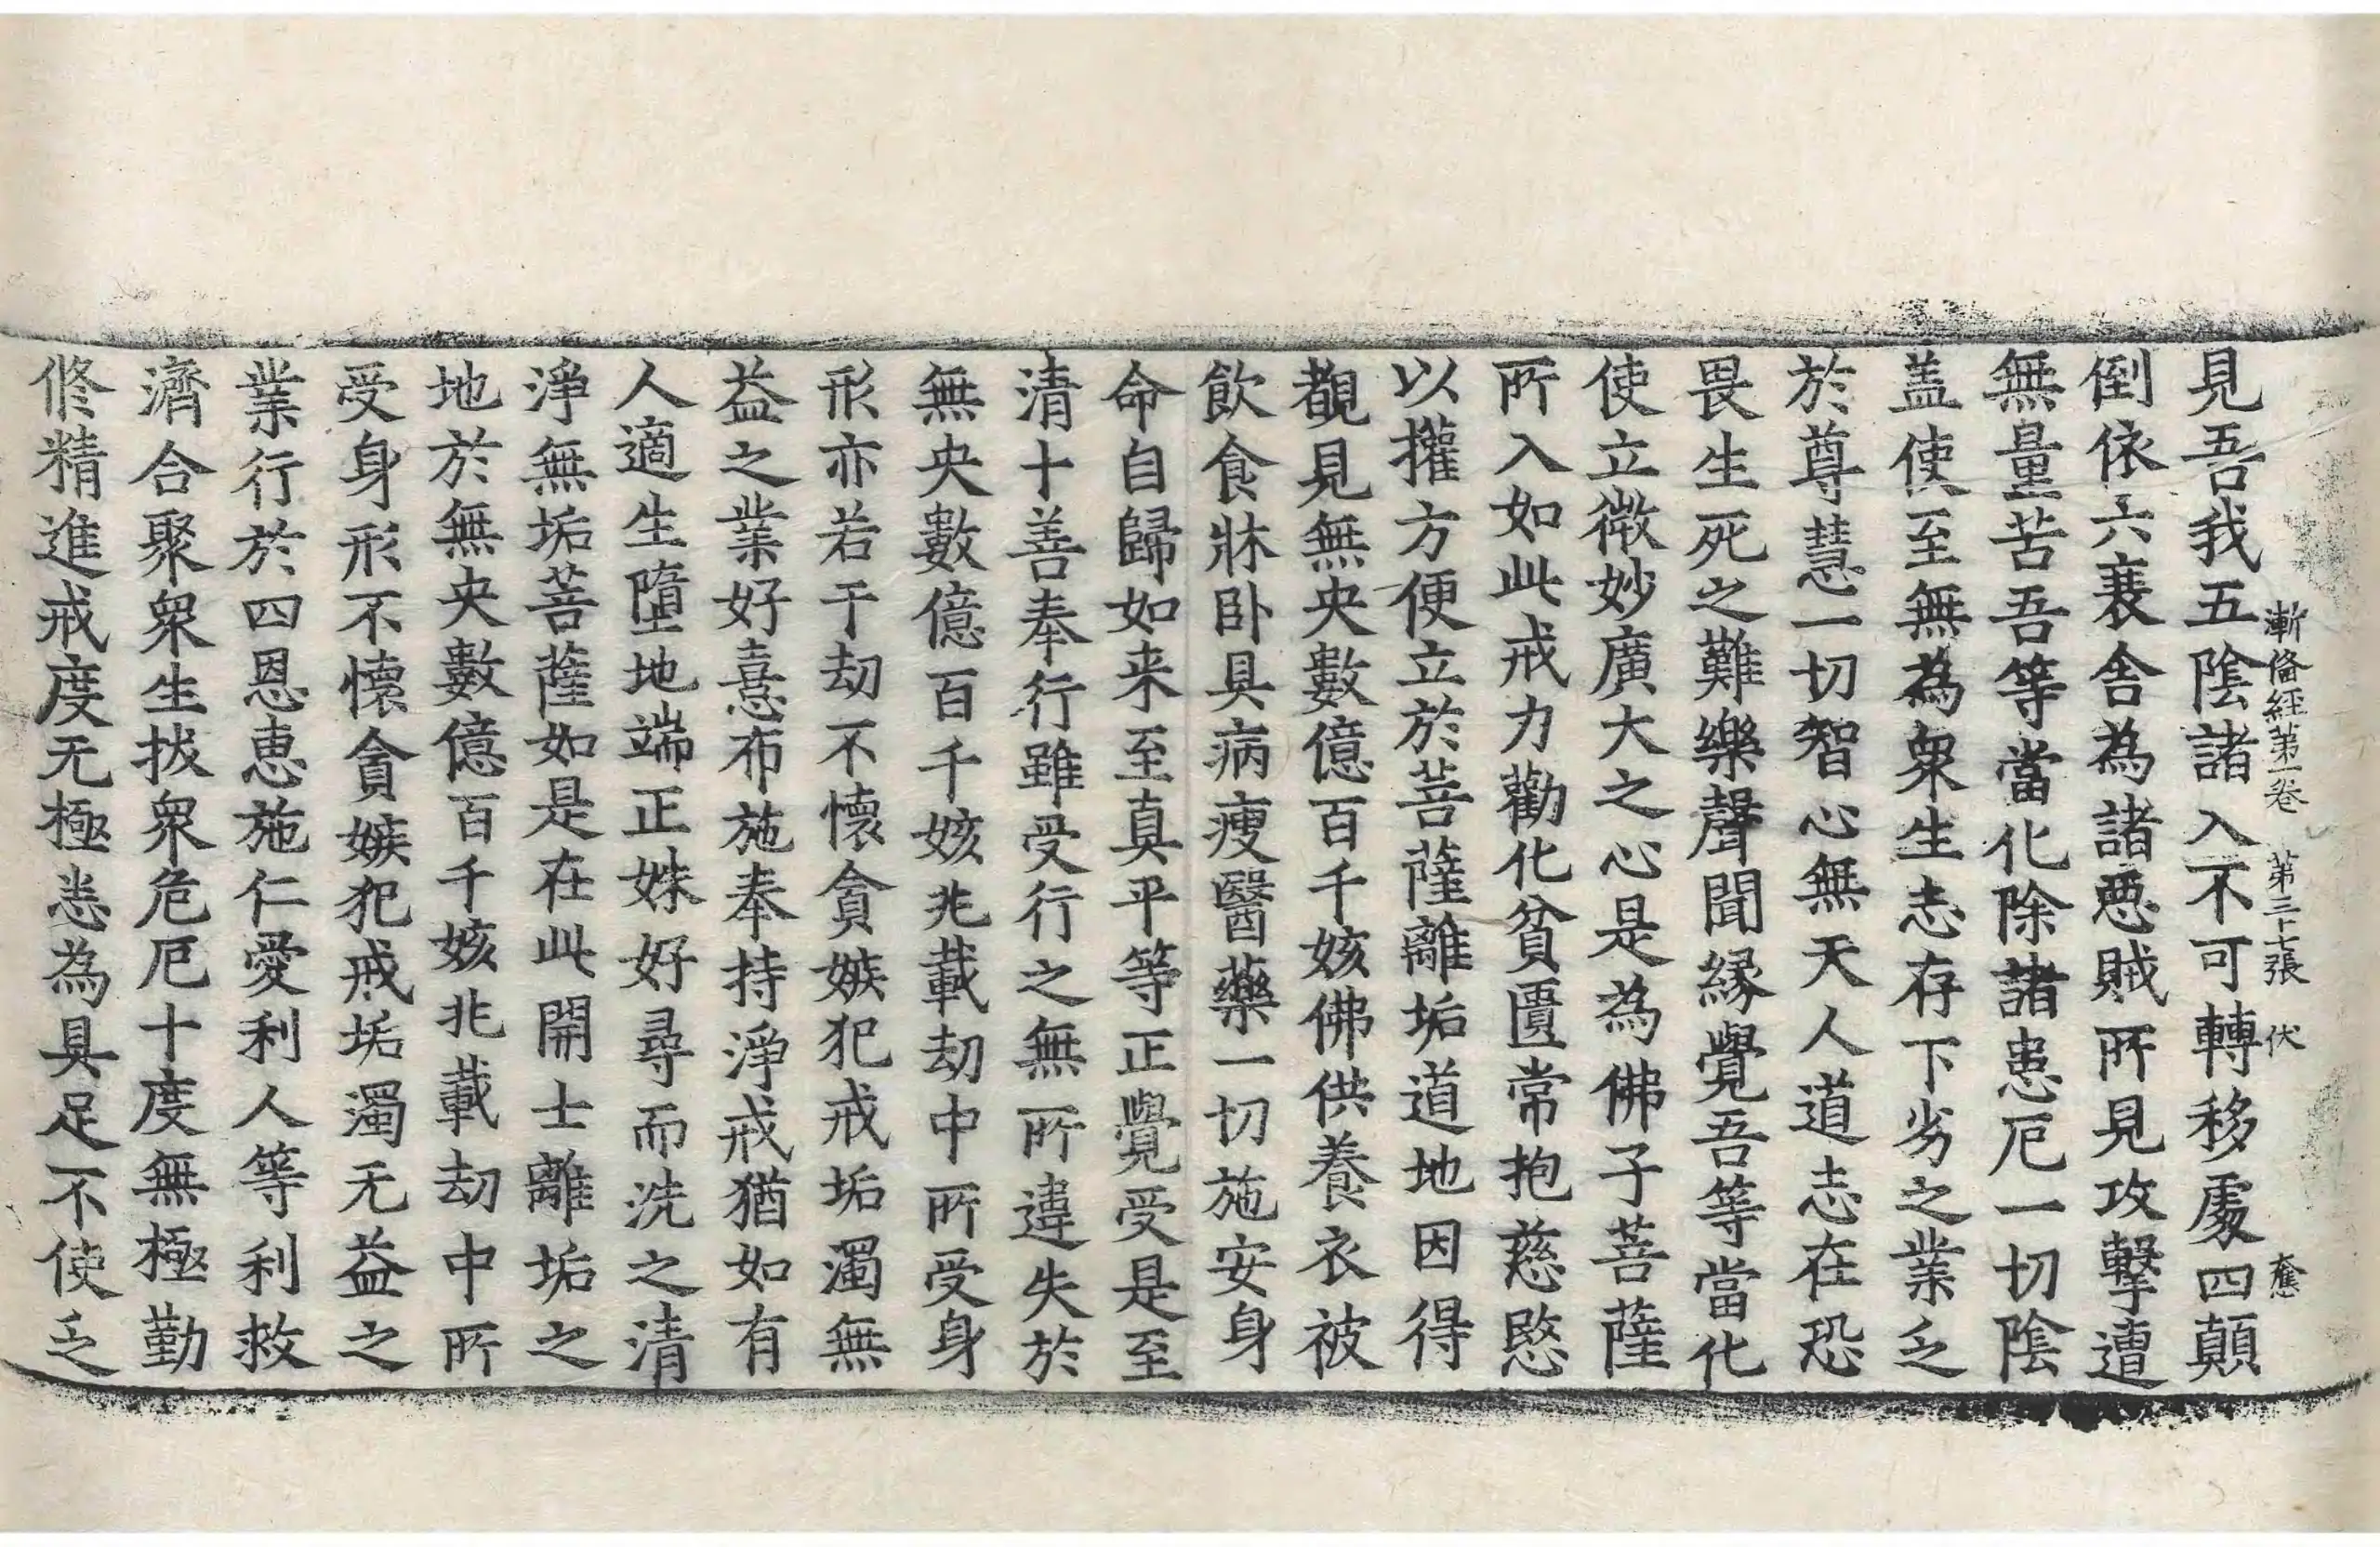 漸俻經第一卷 第三十七張 伏
見吾我五陰諸入不可轉移處四顛
倒依六衰舎為諸惡賊所見攻擊遭
無量苦吾等當化除諸患厄一切陰
盖使至無為衆生志存下劣之業乏
於尊慧一切智心無天人道志在恐
畏生死之難樂聲聞緣覺吾等當化
使立微妙廣大之心是為佛子菩薩
所入如此戒力勸化貧匱常抱慈愍
以攉方便立於菩薩離垢道地因得
覩見無央數億百千姟佛供養衣被
飲食牀卧具病瘦醫藥一切施安身
命自歸如来至真平等正覺受是至
清十善奉行雖受行之無所違失於
無央數億百千姟兆載劫中所受身
形亦若干劫不懷貪嫉犯戒垢濁無
益之業好憙布施奉持淨戒猶如有
人適生墮地端正姝好尋而洗之清
淨無垢菩薩如是在此開士離垢之
地於無央數億百千姟兆載劫中所
受身形不懷貪嫉犯戒垢濁无益之
業行於四恩惠施仁愛利人等利救
濟合聚衆生拔衆危厄十度無極勤
修精進戒度无極恙為具足不使乏